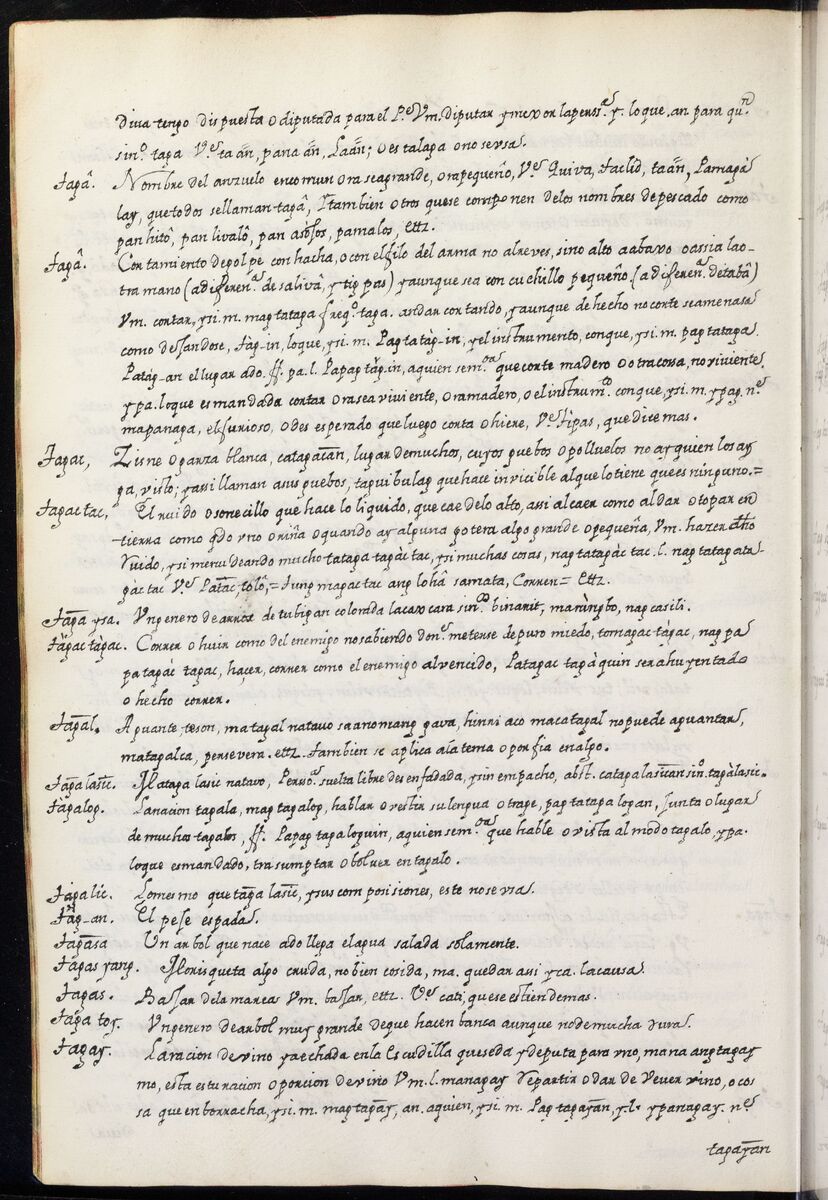 diva tengo dispuesta o diputada para el P.e Vm. diputar y mexor la pers.a y. lo que. an. para qu.n
sin.o taga V.e ta añ, pana añ, Laañ; o es talaga o no se usa.
tagâ. Nombre del anzuelo en comun o ra sea grande, o ra pequeño, V.e Quiva, taclid, taañ, Pamagà
lay, que todos se llaman tagâ, I tambien otros que se componen de los nombres de pescado como
pan hitô, pan livalô, pan asòhos, pamalos, ettz.
tagâ. Cortamiento de golpe con hacha, o con el filo del arma no al reves, sino alto a abaxo o assia la o-
tra mano (a diferen.a de salivâ, y tigpas) y aunque sea con cuchillo pequeño (a diferen.a de tabâ)
Vm. cortar, y si. m. mag tataga freq.o taga. andar cortando, y aunque de hecho no corte se amenasa
como dessandose, tàg-in, lo que, y si. m. Pag ta tàg-in, y el instrumento, con que, y si. m. pag tataga
Patàg-an el lugar ado. ff. pa. l. Papag tàg-in, a quien se m.da que corte madero o otra cossa, no viviente
y pa. lo que es mandada cortar o ra sea viviente, o ra madero, o el instrum.to con que, y si. m. y pag. n.e
mapanaga, el furioso, o des esperado que luego corta o hiere, V.e tìpas, que dice mas.
Tagac, Zisne o garza blanca, catagacan, lugar de muchos, cuyos guebos o polluelos no ay quien los ay
ga, visto; y assi llaman a sus guebos, taguibulag que hace invicible al que lo tiene que es ninguno.=
tagac tac, El ruido o sonecillo que hace lo liquido, que cae de lo alto, assi al caer como al dar o topar en
tierra como q.do vno orina o quando ay alguna gotera algo grande o pequeña, Vm. hazer dho
ruido, y si menudeando mucho tataga tagàc tac, y si muchas cosas, nag tatagàc tac. l. nag tatagata-
gàc tac V.e Patac tolô,= Iung magac tac ang lohâ sa mata, Correr= ettz.
taga ysa. Vn genero de arroz de tubigan colorada la caxcara sin.o binarit, maringlo, nag casili.
tagac tàgac. Correr o huir como del enemigo no sabiendo don.e meterse de puro miedo, tomagac tàgac, nag pa
pa tagàc tagac, haçer, correr como el enemigo al vencido, Patagac tagà quin ser ahuyentado
o hecho correr.
tagal. Aguante, teson, matagal na tavo sa anomang gava, hinri aco maca tagal no puede aguantar,
matagalca, persevera. ettz. tambien se aplica a la tema o porfia en algo.
taga lasic. Mataga lasic na tavo, Perso.a suelta libre desenfadada, y sin empacho, abst. cataga lasican sin.o tagàlasic.
tàgalog. La nacion tagala, mag tagalog, hablar o vestir su lengua o trage, pag tataga logan, Junta o lugar
de muchos tagalos, ff. Papag tagaloguin, a quien se m.da que hable o vista al modo tagalo, y pa.
lo que es mandado, trasumptar o bolver en tagalo.
tàgalic. Lo mesmo que taga lasic, y sus composiciones, este no se usa.
tàg-an. El pexe espadas.
tagasa Un arbol que nace ado llega el agua salada solamente.
tagas yang. Morisqueta algo cruda, no bien cosida, ma. quedar assi y ca. la causa.
tagas. Baxar de la mareas Vm. baxar, ettz. V.e cati, que se estiende mas.
taga toy. Vn genero de arbol muy grande de que hacen banca aunque no de mucha dura.
tagay. La racion de vino ya echada en la Escudilla que se da y deputa para vno, mana ang tagay
mo, esta es tu racion o porcion de vino Vm. l. managay Repartir o dar de vever vino, o co
sa que en borracha, y si. m. mag tagay, an. a quien, y si. m. Pag tagayan, y. l. y panagay. n.e
tagayan